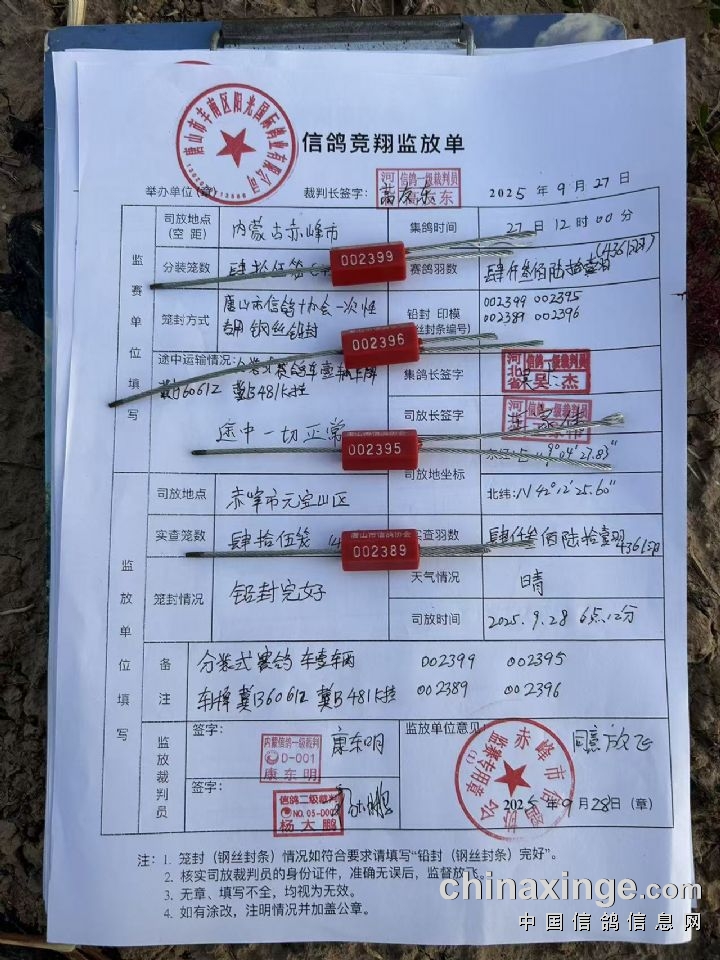 信鸽竞翔监放单
唐山市丰南区阳光国际鸽业有限公司
举办单位(章)
裁判长签字:
信鸽一级裁判员
2025年9月27日
监赛单位填写
司放地点(空距)
内蒙古赤峰市
集鸽时间
27日12时00分
分装笼数
002399
赛鸽羽数
(4361羽)
笼封方式
唐山市信鸽协会一次性
专用钢丝铅封
铅封 印模
丝封条编号)
002399 002395
002389 002396
002396
途中运输情况:
途中一切正常
集鸽长签字
河北省
信鸽一级裁判员
吴杰
司放长签字
002395
司放地坐标
9°04′27.83″
北纬:N 42°12′25.60″
监放单位填写
司放地点
赤峰市元宝山区
实查笼数
肆拾伍笼
实查羽数
4361羽
唐山市信鸽协会
002389
笼封情况
铅封完好
天气情况
晴
司放时间
2025.9.28 6点12分
备注
分装式赛鸽车壹辆 002399 002395
车牌冀B6061Z 冀B481K挂 002389 002396
监放裁判员
签字:
内蒙信鸽一级裁判
D-001
康东明
康东明
签字:
信鸽二级裁判
杨大鹏
监放单位意见:
同意放飞
赤峰市信鸽协会
监赛专用章
(1)
2025年9月28日(章)
注:1. 笼封(钢丝封条)情况如符合要求请填写“铅封(钢丝封条)完好”。
2. 核实司放裁判员的身份证件,准确无误后,监督放飞。
3. 无章、填写不全,均视为无效。
4. 如有涂改,注明情况并加盖公章。
chinaxinge.com
中国信鸽信息网